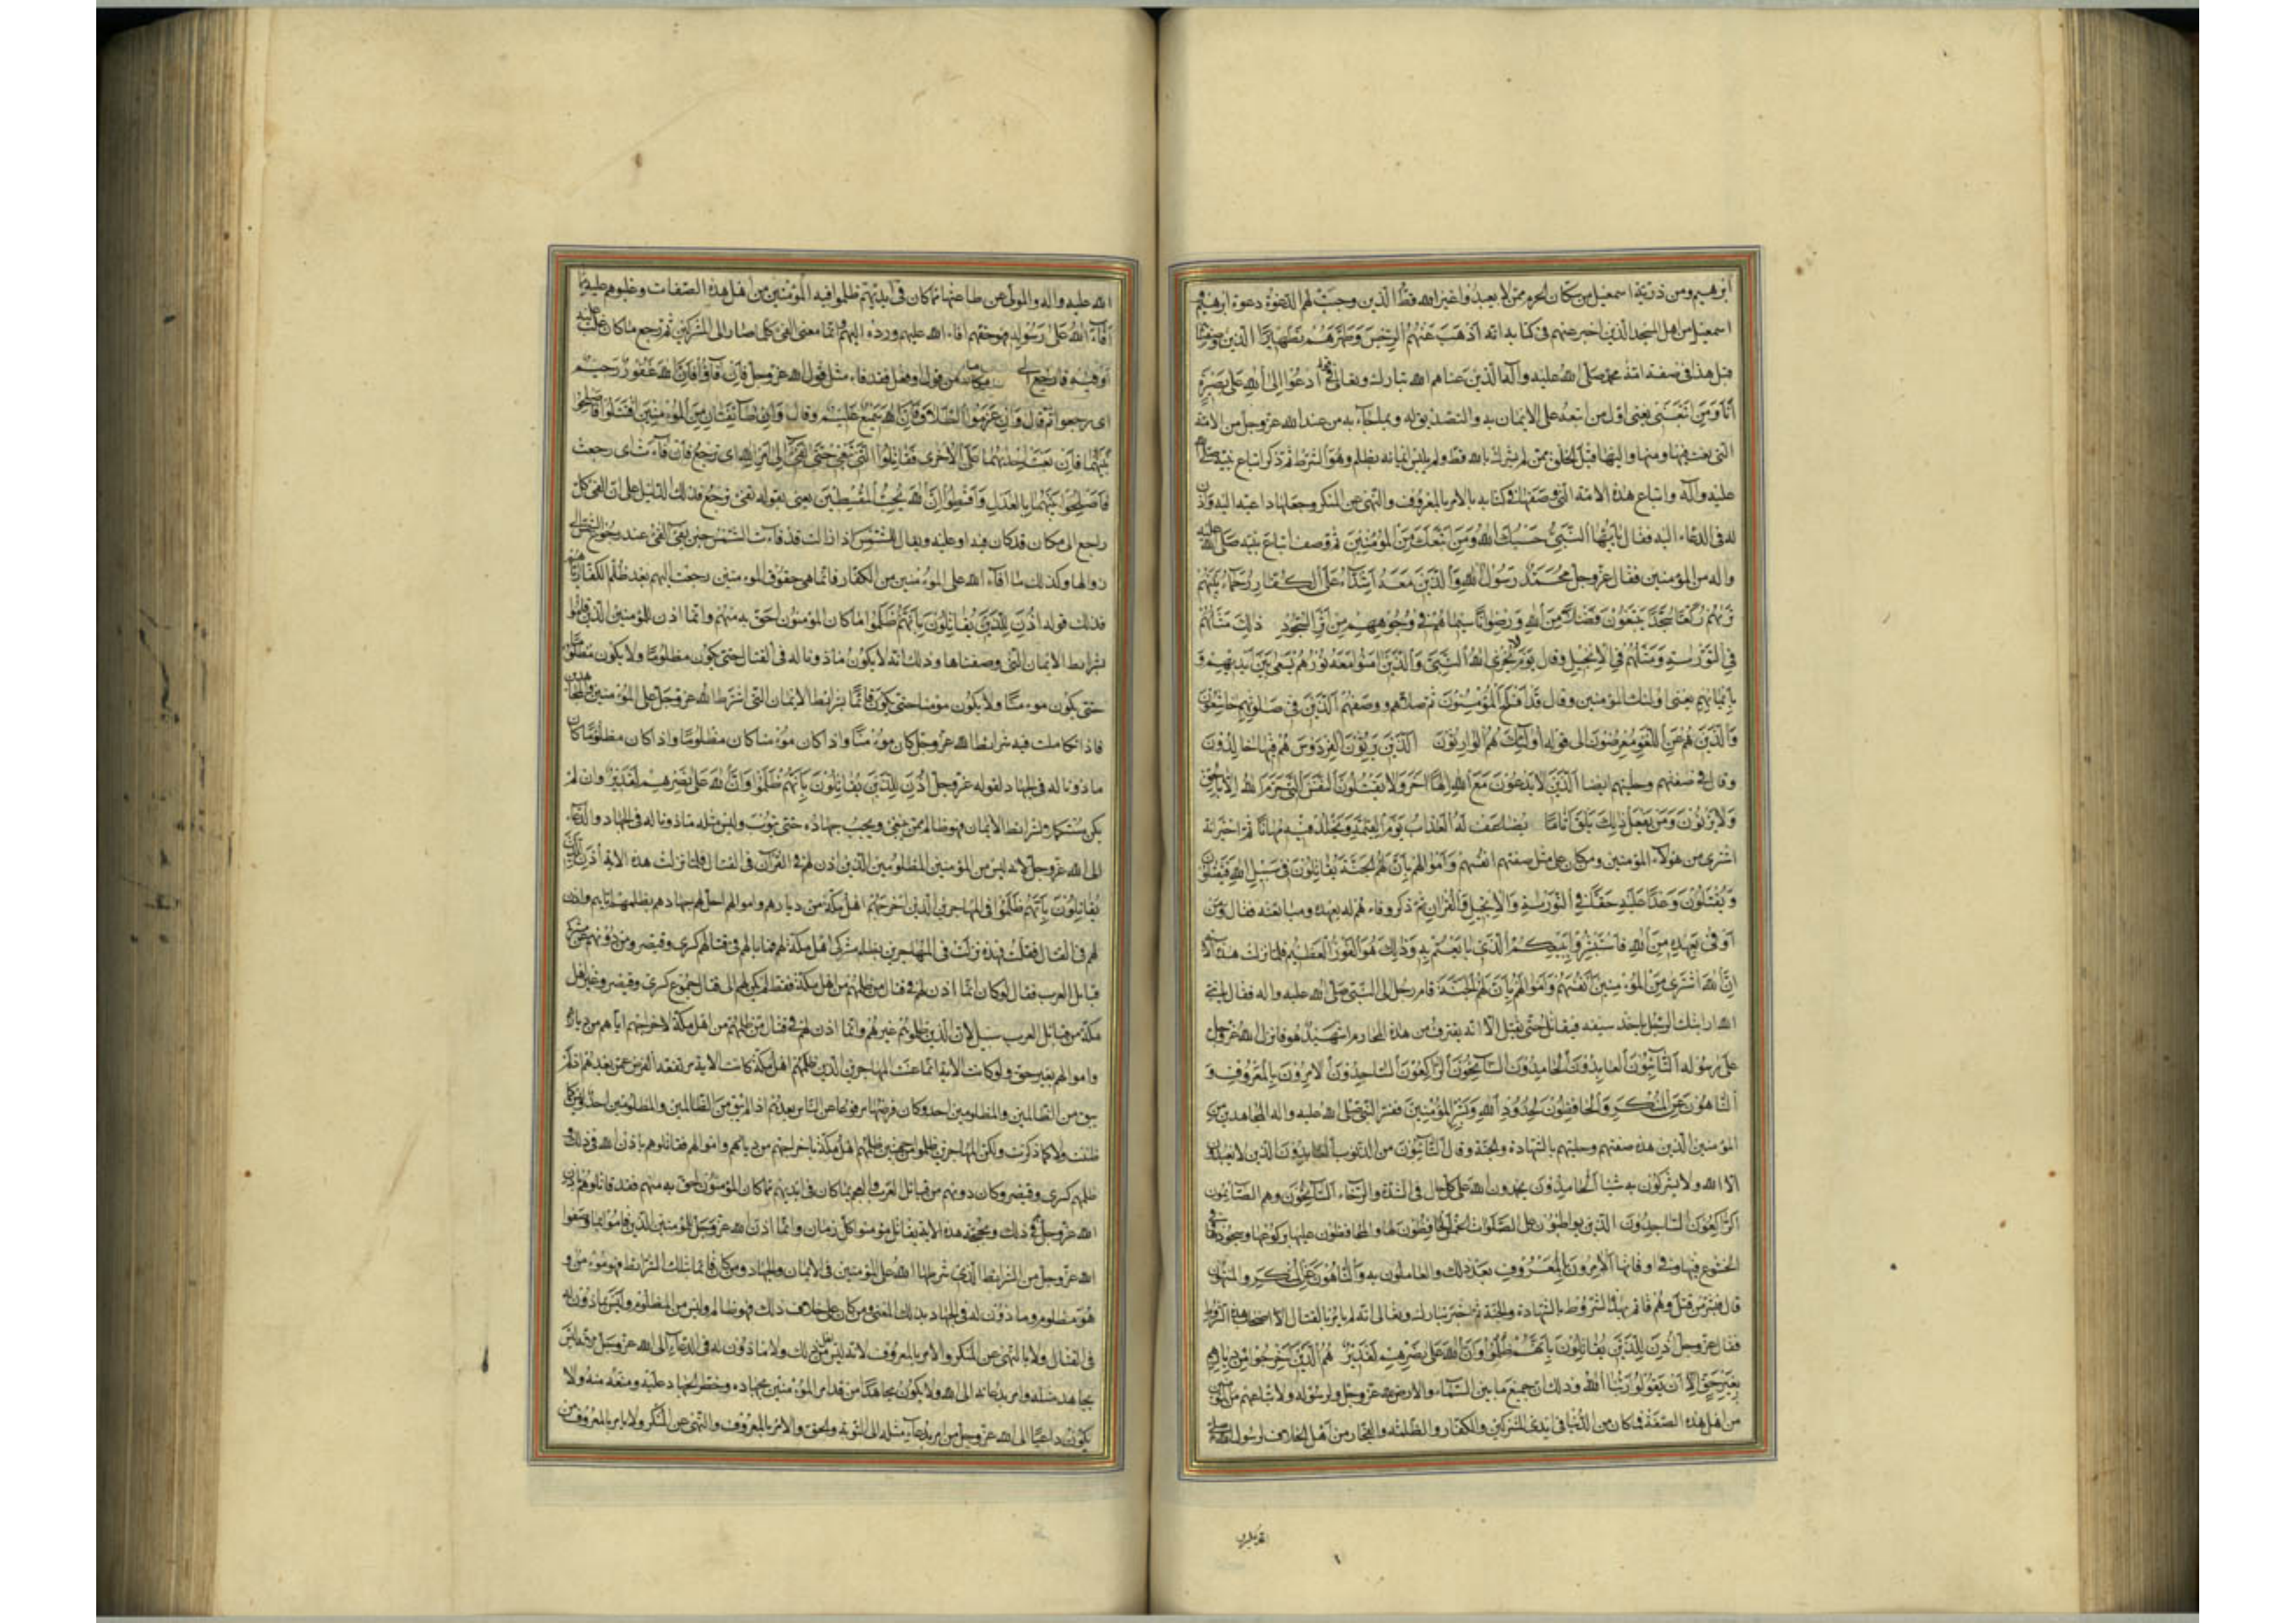 ابرهيم ومن ذرية اسمعيل من سكان الحرم ممن لا يعبدوا غير الله قط الذين وجبت لهم الدعوة دعوة ابرهيم و
اسمعيل من اهل المسجد الذين اخبر عنهم فى كتابه انه اذهب عنهم الرجس وطهرهم تطهيرا الذين وصفنا
قبل هذا فى صفة امة محمد صلى الله عليه وآله الذين عناهم الله تبارك وتعالى فى قوله ادعوا الى الله على بصيرة
انا ومن اتبعنى يعنى اول من اتبعه على الايمان به والتصديق له وبما جاء به من عند الله عز وجل من الامة
التى بعث فيها ومنها واليها قبل الخلق ممن لم يشرك بالله قط ولم يلبس ايمانه بظلم وهو الشرك ثم ذكر اتباع نبيه صلى الله
عليه وآله واتباع هذه الامة التى وصفها فى كتابه بالامر بالمعروف والنهى عن المنكر وجعلها داعية اليه واذن
له فى الدعاء اليه فقال يا ايها النبى حسبك الله ومن اتبعك من المؤمنين ثم وصف اتباع نبيه صلى الله عليه
واله من المؤمنين فقال عز وجل محمد رسول الله والذين معه اشداء على الكفار رحماء بينهم
تريهم ركعا سجدا يبتغون فضلا من الله ورضوانا سيماهم فى وجوههم من اثر السجود ذلك مثلهم
فى التورية ومثلهم فى الانجيل وقال يوم لا يخزى الله النبى والذين امنوا معه نورهم يسعى بين ايديهم و
بايمانهم يعنى اولئك المؤمنين وقال قد افلح المؤمنون ثم حلاهم ووصفهم الذين فى صلوتهم خاشعون
والذين هم عن اللغو معرضون الى قوله اولئك هم الوارثون الذين يرثون الفردوس هم فيها خالدون
وقال فى صفتهم وحليتهم ايضا الذين لا يدعون مع الله الها اخر ولا يقتلون النفس التى حرم الله الا بالحق
ولا يزنون ومن يفعل ذلك يلق اثاما يضاعف له العذاب يوم القيمة ويخلد فيه مهانا ثم اخبر انه
اشترى من هؤلاء المؤمنين ومن كان على مثل صفتهم انفسهم واموالهم بان لهم الجنة يقاتلون فى سبيل الله فيقتلون
ويقتلون وعدا عليه حقا فى التورية والانجيل والقران ثم ذكر وفاءهم له بعهده ومبايعته فقال ومن
اوفى بعهده من الله فاستبشروا ببيعكم الذى بايعتم به وذلك هو الفوز العظيم فلما نزلت هذه الاية
ان الله اشترى من المؤمنين انفسهم واموالهم بان لهم الجنة قام رجل الى النبى صلى الله عليه واله فقال يا نبى
الله ارايتك الرجل ياخذ سيفه فيقاتل حتى يقتل الا انه يقترف من هذه المحارم اشهيد هو فانزل الله عز وجل
على رسوله التائبون العابدون الحامدون السائحون الراكعون الساجدون الامرون بالمعروف و
الناهون عن المنكر والحافظون لحدود الله وبشر المؤمنين ففسر النبى صلى الله عليه واله المجاهدين من
المؤمنين الذين هذه صفتهم وحليتهم بالشهادة والجنة وقال التائبون من الذنوب العابدون الذين لا يعبدون
الا الله ولا يشركون به شيئا الحامدون يحمدون الله على كل حال فى الشدة والرخاء السائحون وهم الصائمون
الراكعون الساجدون الذين يواظبون على الصلوات الخمس الحافظون لها والمحافظون عليها بركوعها وسجودها فى
الخشوع فيها وفى اوقاتها الامرون بالمعروف بعد ذلك والعاملون به والناهون عن المنكر والمنتهون
قال فبشر من قتل وهم قائم بهذه الشروط بالشهادة والجنة ثم اخبر تبارك وتعالى انه لم يامر بالقتال الا اصحاب هذه الشروط
فقال عز وجل اذن للذين يقاتلون بانهم ظلموا وان الله على نصرهم لقدير هم الذين اخرجوا من ديارهم
بغير حق الا ان يقولوا ربنا الله وذلك ان جميع ما بين السماء والارض لله عز وجل ولرسوله ولاتباعهم من المؤمنين
من اهل هذه الصفة فما كان من الدنيا فى ايدى المشركين والكفار والظلمة والفجار من اهل الخلاف لرسول الله صلى
الله عليه واله والمولى عن طاعتهما مما كان فى ايديهم ظلموا فيه المؤمنين من اهل هذه الصفات وغلبوهم عليه مما
افاء الله على رسوله فهو حقهم افاء الله عليهم ورده اليهم وانما معنى الفىء كلما صار الى المشركين ثم رجع مما كان غلب عليه
او فيه فما رجع الى مكانه من قول او فعل فقد فاء مثل قول الله عز وجل فان فاؤا فان الله غفور رحيم
اى رجعوا ثم قال وان عزموا الطلاق فان الله سميع عليم وقال وان طائفتان من المؤمنين اقتتلوا فاصلحوا
بينهما فان بغت احديهما على الاخرى فقاتلوا التى تبغى حتى تفئ الى امر الله اى ترجع فان فاءت اى رجعت
فاصلحوا بينهما بالعدل واقسطوا ان الله يحب المقسطين يعنى بقوله تفئ ترجع فذلك الدليل على ان الفىء كل
راجع الى مكان قد كان فيه او عليه ويقال للشمس اذا زالت قد فاءت الشمس حين يفئ الفئ عند رجوع الشمس الى
زوالها وكذلك ما افاء الله على المؤمنين من الكفار فانما هى حقوق المؤمنين رجعت اليهم بعد ظلم الكفار
فذلك قوله اذن للذين يقاتلون بانهم ظلموا ما كان المؤمنون احق به منهم وانما اذن للمؤمنين الذين قاموا
بشرايط الايمان التى وصفناها وذلك انه لا يكون ماذونا له فى القتال حتى يكون مظلوما ولا يكون مظلوما
حتى يكون مؤمنا ولا يكون مؤمنا حتى يكون قائما بشرايط الايمان التى اشترط الله عز وجل على المؤمنين والمجاهدين
فاذا تكاملت فيه شرايط الله عز وجل كان مؤمنا واذا كان مؤمنا كان مظلوما واذا كان مظلوما كان
ماذونا له فى الجهاد لقوله عز وجل اذن للذين يقاتلون بانهم ظلموا وان الله على نصرهم لقدير وان لم
يكن مستكملا لشرايط الايمان فهو ظالم ممن ينبغى ويجب جهاده حتى يتوب وليس مثله ماذونا له فى الجهاد والدعاء
الى الله عز وجل لانه ليس من المؤمنين المظلومين الذين اذن لهم فى القرآن فى القتال فلما نزلت هذه الاية اذن للذين
يقاتلون بانهم ظلموا فى المهاجرين الذين اخرجهم اهل مكة من ديارهم واموالهم احل لهم جهادهم بظلمهم اياهم واذن
لهم فى القتال فقلت فهذه نزلت فى المهاجرين بظلم مشركى اهل مكة لهم فما بالهم فى قتالهم كسرى وقيصر ومن دونهم من مشركى
قبائل العرب فقال لو كان انما اذن لهم فى قتال من ظلمهم من اهل مكة فقط لم يكن لهم الى قتال جموع كسرى وقيصر وغير اهل
مكة من قبائل العرب سبيل لان الذين ظلموهم غيرهم وانما اذن لهم فى قتال من ظلمهم من اهل مكة لاخراجهم اياهم من ديارهم
واموالهم بغير حق ولو كانت الاية انما عنت المهاجرين الذين ظلمهم اهل مكة كانت الاية مرتفعة الفرض عمن بعدهم اذ لم
يبق من الظالمين والمظلومين احد وكان فرضها مرفوعا عن الناس بعدهم اذ لم يبق من الظالمين والمظلومين احد وليس كما
ظننت ولا كما ذكرت ولكن المهاجرين ظلموا من جهتين ظلمهم اهل مكة باخراجهم من ديارهم واموالهم فقاتلوهم باذن الله فى ذلك و
ظلمهم كسرى وقيصر ومن كان دونهم من قبائل العرب والعجم بما كان فى ايديهم مما كان المؤمنون احق به منهم فقد قاتلوهم باذن
الله عز وجل فى ذلك وبحجة هذه الاية يقاتل مؤمنوا كل زمان وانما اذن الله عز وجل للمؤمنين الذين قاموا بما وصفوا
الله عز وجل من الشرايط الذى شرطها الله على المؤمنين فى الايمان والجهاد ومن كان قائما بتلك الشرايط فهو مؤمن و
هو مظلوم وماذون له فى الجهاد بذلك المعنى ومن كان على خلاف ذلك فهو ظالم وليس من المظلومين وليس بماذون له
فى القتال ولا بالنهى عن المنكر والامر بالمعروف لانه ليس من اهل ذلك ولا ماذون له فى الدعاء الى الله عز وجل لانه ليس
يجاهد مثله وامر بدعائه الى الله ولا يكون مجاهدا من قد امر المؤمنين بجهاده وحظر الجهاد عليه ومنعه منه ولا
يكون داعيا الى الله عز وجل من امر بدعاء مثله الى التوبة والحق والامر بالمعروف والنهى عن المنكر ولا يامر بالمعروف من